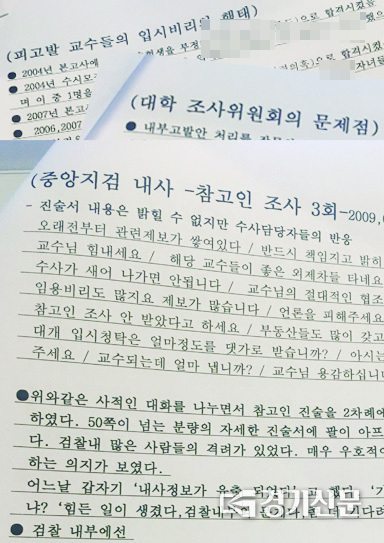 (피고발 교수들의 입시비리의 행태)
● 2004년 본고사에
● 2004년 수시모
며 이 중 1명을
● 2007년 본고사
2006,2007
으로 합격시켰
으로 합격시켰
(대학 조사위원회의 문제점)
● 내부고발안 처리를
(중앙지검 내사 -참고인 조사 3회-2009,
- 진술서 내용은 밝힐 수 없지만 수사담당자들의 반응
오래전부터 관련제보가 쌓여있다 / 반드시 책임지고 밝히
교수님 힘내세요 / 해당 교수들이 좋은 외제차를 타네요
수사가 새어 나가면 안됩니다 / 교수님의 절대적인 협조
임용비리도 많지요 제보가 많습니다 / 언론을 피해주세요
참고인 조사 안 받았다고 하세요 / 부동산들도 많이 갖고
대개 입시청탁은 얼마정도를 댓가로 받습니까? / 아시는
주세요 / 교수되는데 얼마 냅니까? / 교수님 용감하십니다
●위와같은 사적인 대화를 나누면서 참고인 진술을 2차례에
하였다. 50쪽이 넘는 분량의 자세한 진술서에 팔이 아프
다. 검찰내 많은 사람들의 격려가 있었다. 매우 우호적이
하는 의지가 보였다.
어느날 갑자기 '내사정보가 유출 되었다' 고 했다.
냐? '힘든 일이 생겼다,검찰내부
● 검찰 내부에선
경기신문